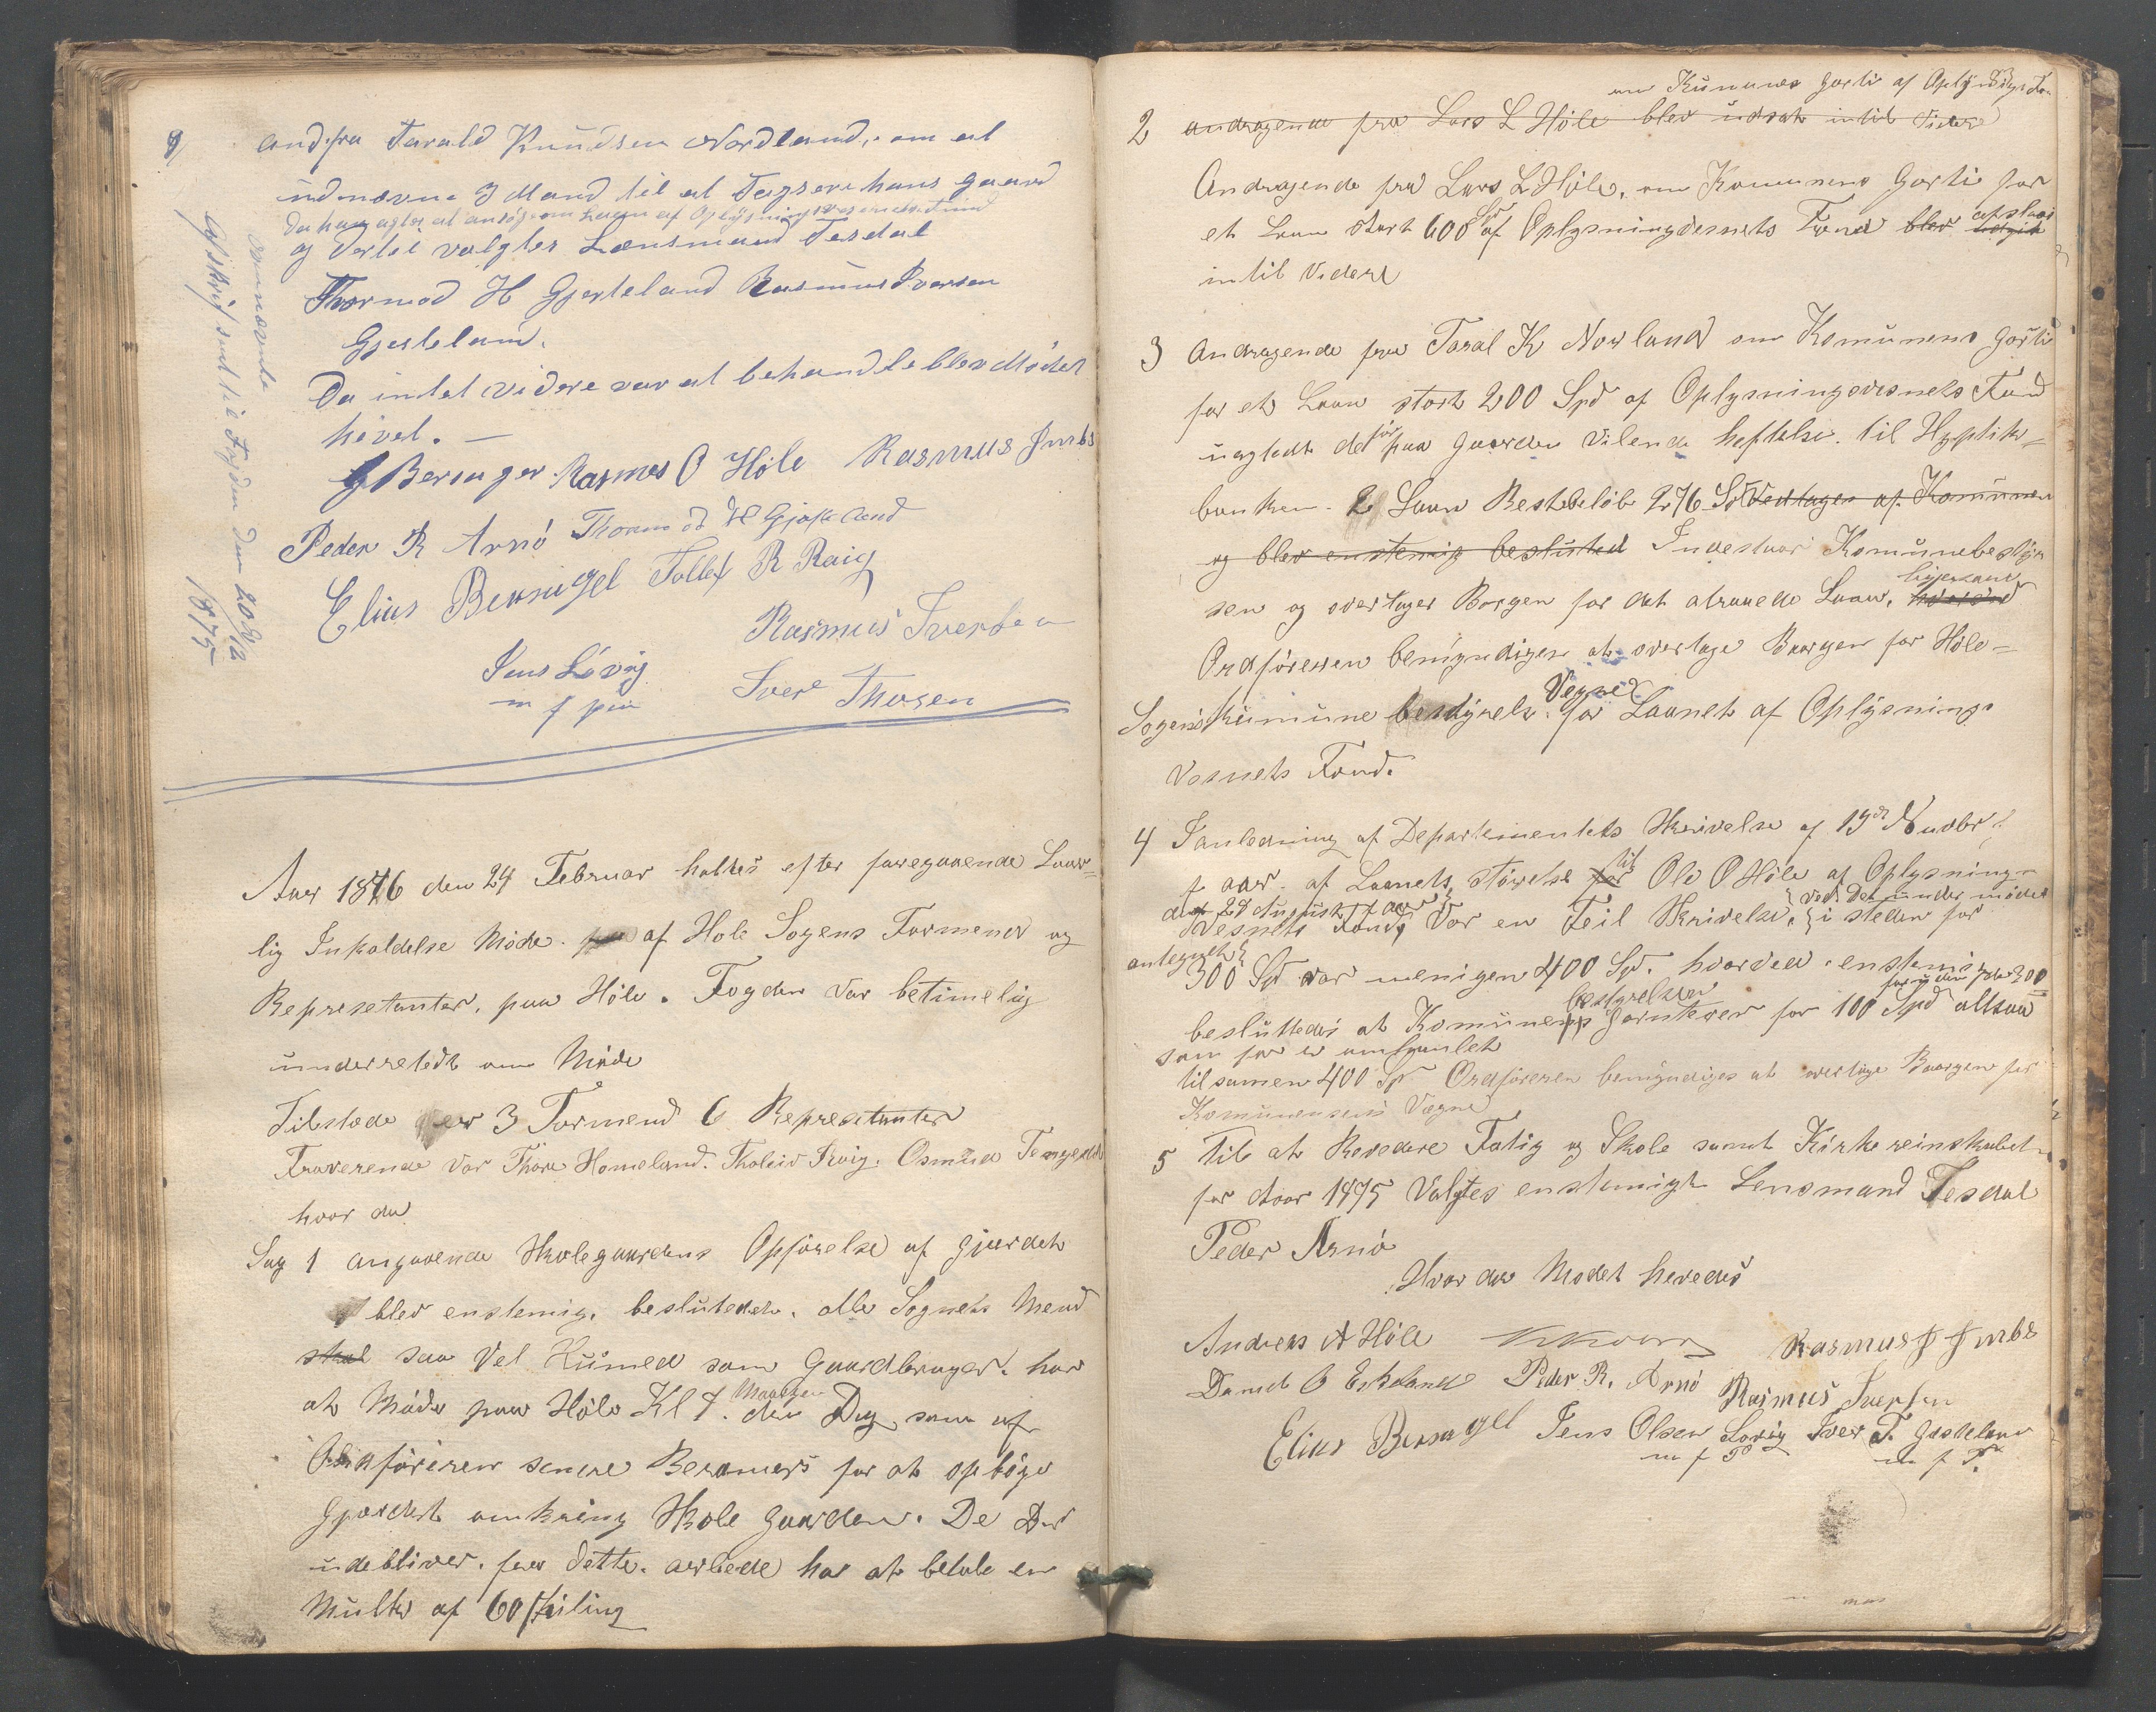 8/ and. fra Tarald Knudsen Nordland, om at
udnævne 3 Mand til at Taxsere hans gaard
da han agter at ansøge om Laan af Oplysningsvesenets Fund
og dertil valgtes Lensmand Tesdal
Thormod H Gjesteland Rasmus Iversen
Gjesteland.
Da intet videre var at behandle blev Mødet
hævet. —
Rasmus O Höle Rasmus J Ims
Peder R Arnö Thormod H Gjesteland
Elias Bersagel Tollef R Raig
Rasmus Iversen
Jens Lövig
m f pen
Iver Thosen
ovennævnte
Afskrift sendt til Fogden den 20 3/12
1875
Aar 1876 den 24 Februar holtes efter foregaaende Laav-
lig Inkaldelse Möde af Hole Sogens Formend og
Represetanter, paa Höle. Fogden Var betimelig
underretedt om Möde
Tilstede 3 Formend 6 Represetanter
Fraverende Var Thore Homeland. Tholeiv Roig. Osmund
hvor da
Sag 1 angaaende Skolegaardens Opförelse af gjærdet
blev enstemig. besluttedet. alle Sognets Mend
skal saa Vel Husmed som Gaardbruger. har
at Möde paa Höle Kl 7. Maargen den Dag som af
Ordföreren senere Berames for at opböge
Gjærdet omkring Skole Gaarden. De Der
udebliver. fra dette. arbede har at betale en
Mulkt af 60 skiling
om Kumunes garti af Oplysnings Fon
2 andragende fra Lars L Höle blev udsat intil Videre
Andragende fra Lars L Höle, om Komunens Garti for
et Laan stort 600 Spd af Oplysningvesnets Fond blev afslaat
intil Videre
3 Andragende fra Taral K Norland om Komunens garti
for et Laan stort 200 Spd af Oplysningsvesnets Fund
uagtedt det för paa gaarden Vilende heftelse. til Hyptik-
banken. 2 Laan Restbelöb 276 Sp Vedtages af Komunen
og blev enstemig beslutted Indestaar Komunebestyr
sen og overtager Borgen for det attraaede Laan.
Ordföreren bemyndiges at overtage Borgen for Höle-
Sogens Kumune bestyrels Vegne for Laanet af Oplysnings
Vesnets Fond.
4 Ianledning af Departementets Skrivelse af 19de Nuvbr
f aar. af Laanets störelse til Ole O Höle af Oplysning-
af 28 August f aar ved Det under mödet
Vesnets Fond, Var en Feil Skrivelse. i steden for
antegnet
300 Spd var menigen 400 Spd. hvorved enstemig
bestyrelsen foruden for de 300
besluttedes at Komunens garnterer for 100 Spd altsaa
som för er omhanlet
tilsamen 400 Sp Ordföreren bemyndiges at overtage Baargen for
Komunensens Vegne
5 Til at Revedere Fatig og Skole samt Kirke reinskabet
for Aar 1875 Valgtes enstemigt Lensmand Tesdal
Peder Arnö
Hvor da Modet hevedes
Andreas A Höle Rasmus J Ims
Daniel O Eskeland Peder R. Arnö Rasmus Iversen
Elias Bersagel Jens Olsen Lovig Iver T. Gjesteland
m f P m f P.